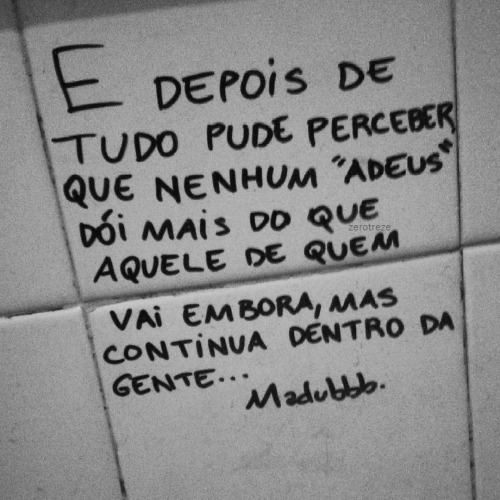 E DEPOIS DE
TUDO PUDE PERCEBER
QUE NENHUM "ADEUS"
DÓI MAIS DO QUE
zerotreze
AQUELE DE QUEM
VAI EMBORA, MAS
CONTINUA DENTRO DA
GENTE...
Madubbb.